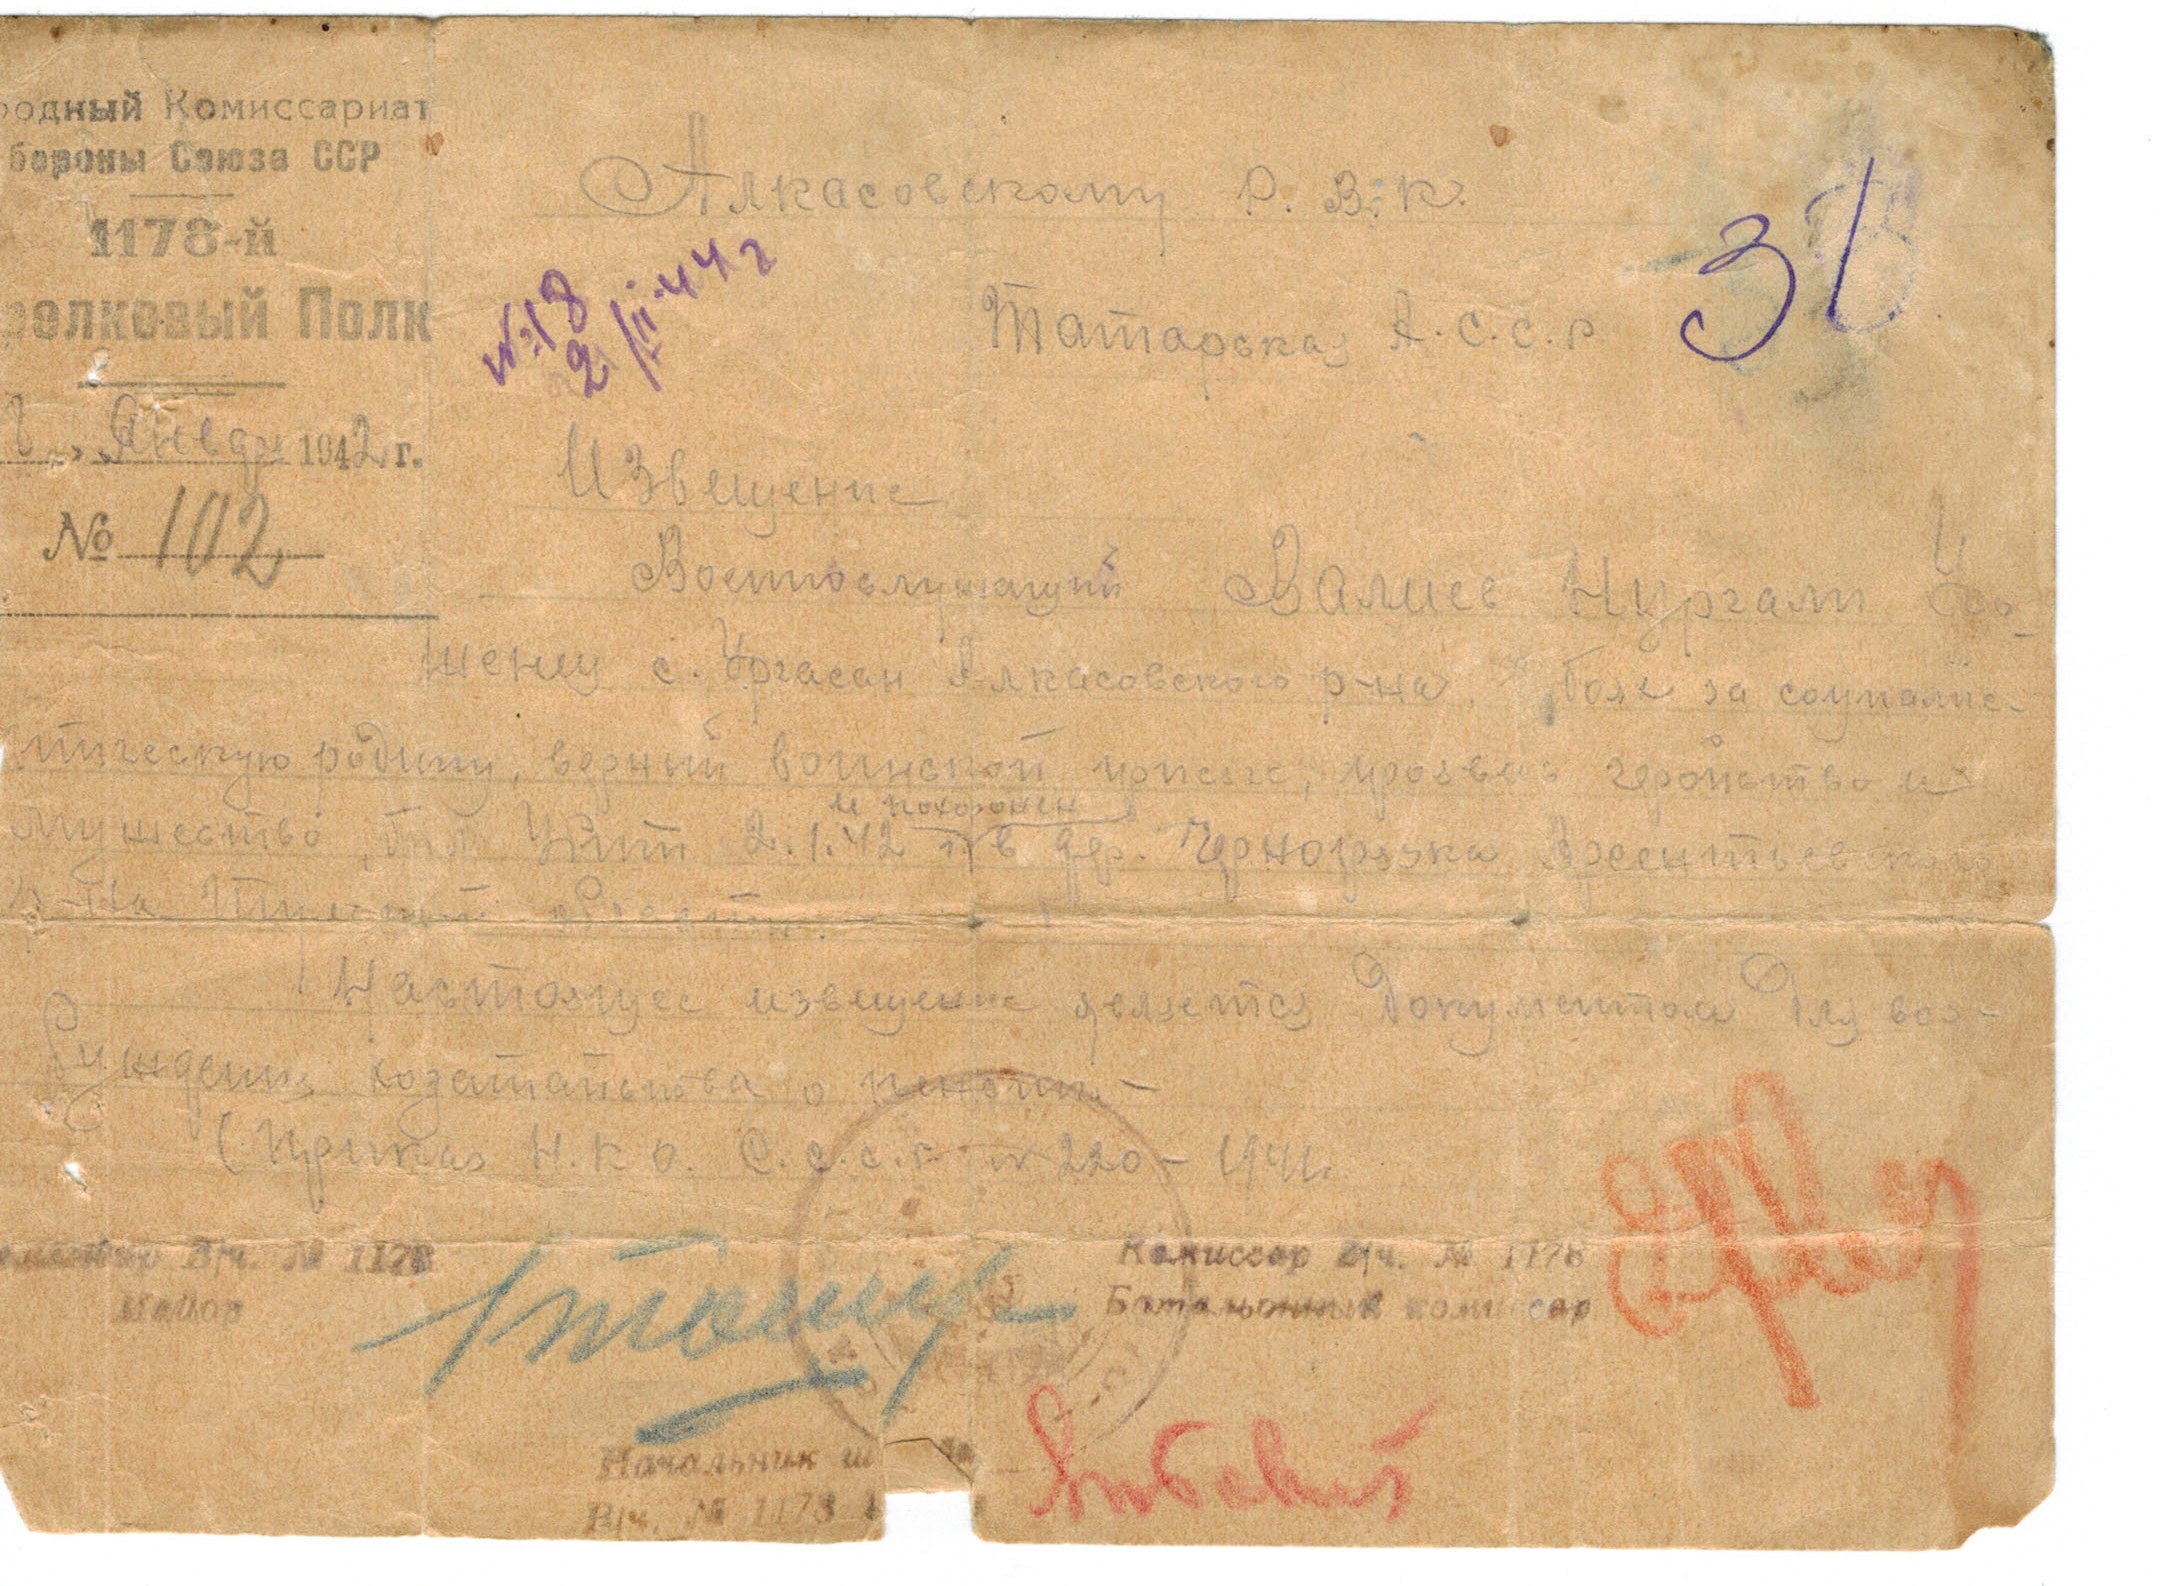 родный Комиссариат
бороны Союза ССР
1178-й
релковый Полк
Январ 1942 г.
№ 102
Алкасовскому Р. В. К.
Татарская А.С.С.Р.
31
№ 18
2/II-44 г
Извещение
Военнослужащий Валиев Нургали
женец с. Ургасан Алкасовского р-на. В боях за социалис-
тическую родину, верный воинской присяге, проявив геройство и
мужество, был убит 2.1.42 и похоронен в дер. Чернорязка Арсентьевского
р-на Тульской области.
Настоящее извещение является документом для воз-
буждения ходатайства о пенсии -
(Приказ Н.К.О. С.С.С.Р № 220 - 1941.
В/ч. № 1178
Майор
Комиссар В/ч. № 1178
Батальонный комиссар
Начальник ш
В/ч. № 1178